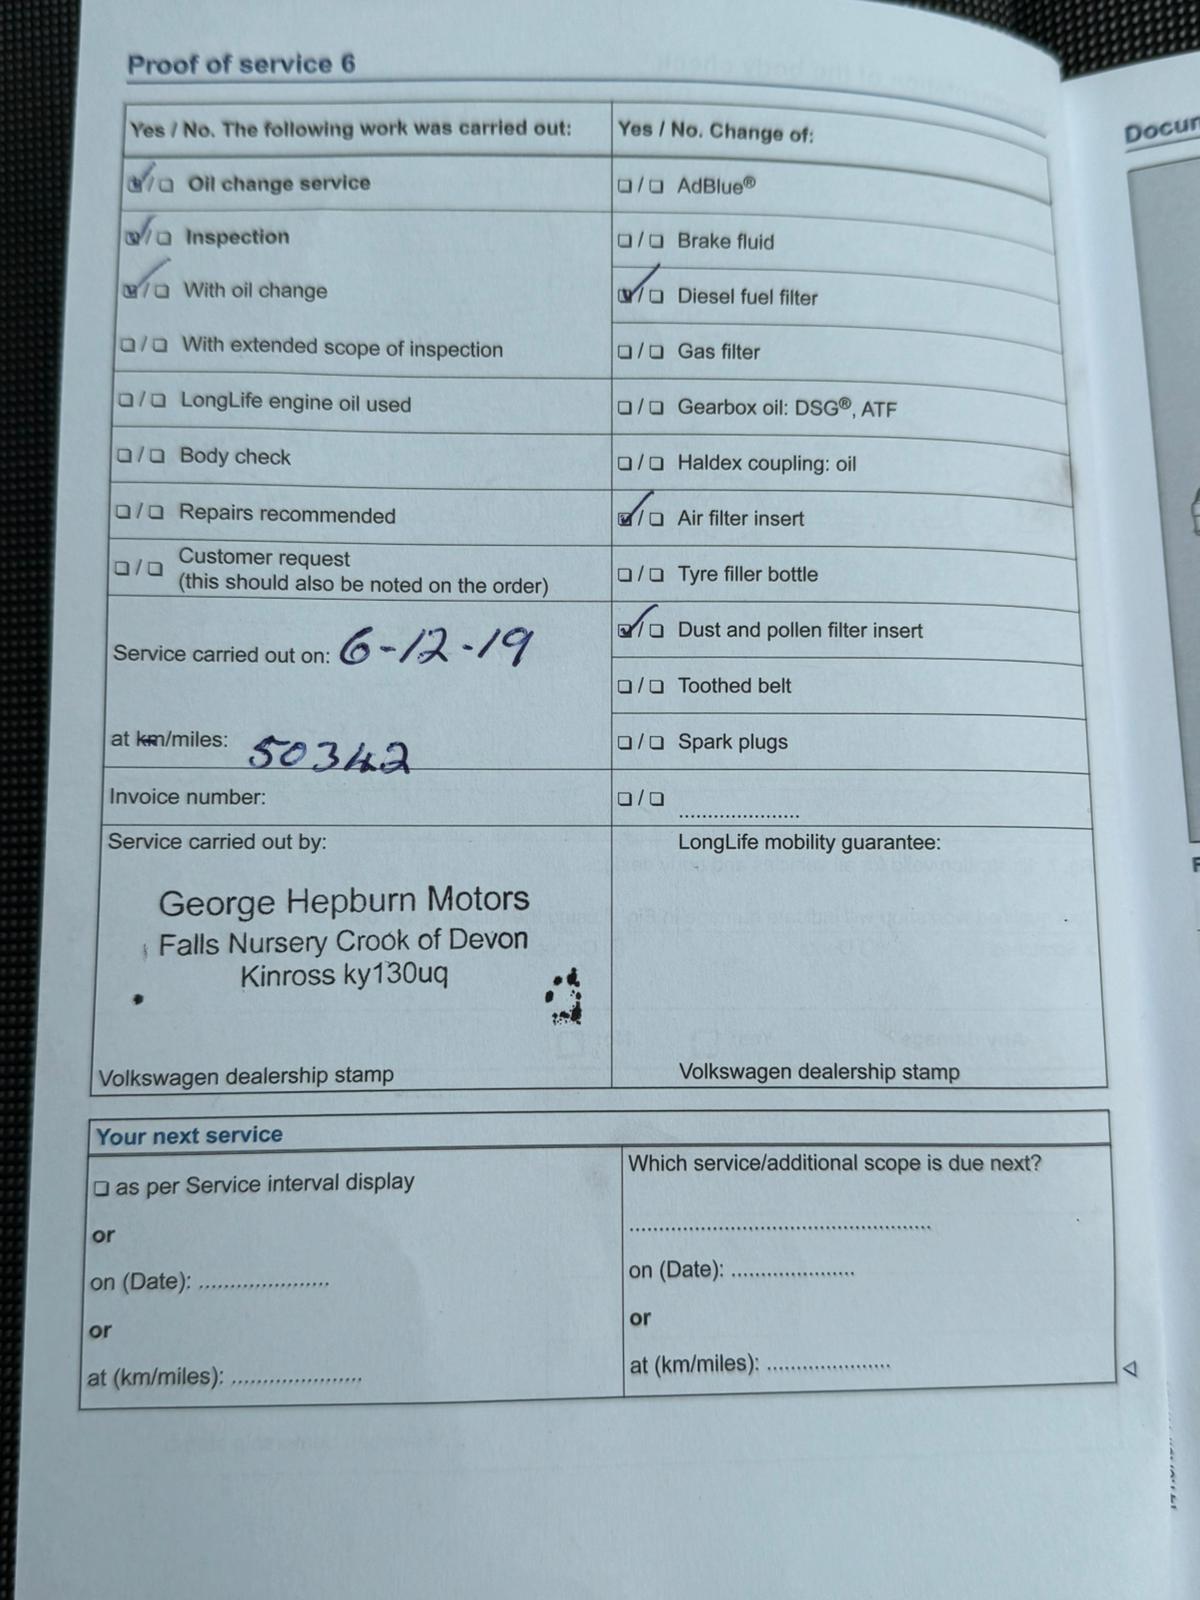 Proof of service 6
Yes / No. The following work was carried out:
☑/☐ Oil change service
☑/☐ Inspection
☑/☐ With oil change
☐/☐ With extended scope of inspection
☐/☐ LongLife engine oil used
☐/☐ Body check
☐/☐ Repairs recommended
☐/☐ Customer request
(this should also be noted on the order)
Service carried out on: 6-12-19
at km/miles: 50342
Invoice number:
Service carried out by:
George Hepburn Motors
Falls Nursery Crook of Devon
Kinross ky130uq
Volkswagen dealership stamp
Yes / No. Change of:
☐/☐ AdBlue®
☐/☐ Brake fluid
☑/☐ Diesel fuel filter
☐/☐ Gas filter
☐/☐ Gearbox oil: DSG®, ATF
☐/☐ Haldex coupling: oil
☑/☐ Air filter insert
☐/☐ Tyre filler bottle
☑/☐ Dust and pollen filter insert
☐/☐ Toothed belt
☐/☐ Spark plugs
☐/☐ .....................
LongLife mobility guarantee:
Volkswagen dealership stamp
Your next service
☐ as per Service interval display
or
on (Date): .....................
or
at (km/miles): .....................
Which service/additional scope is due next?
..................................................
on (Date): .....................
or
at (km/miles): .....................